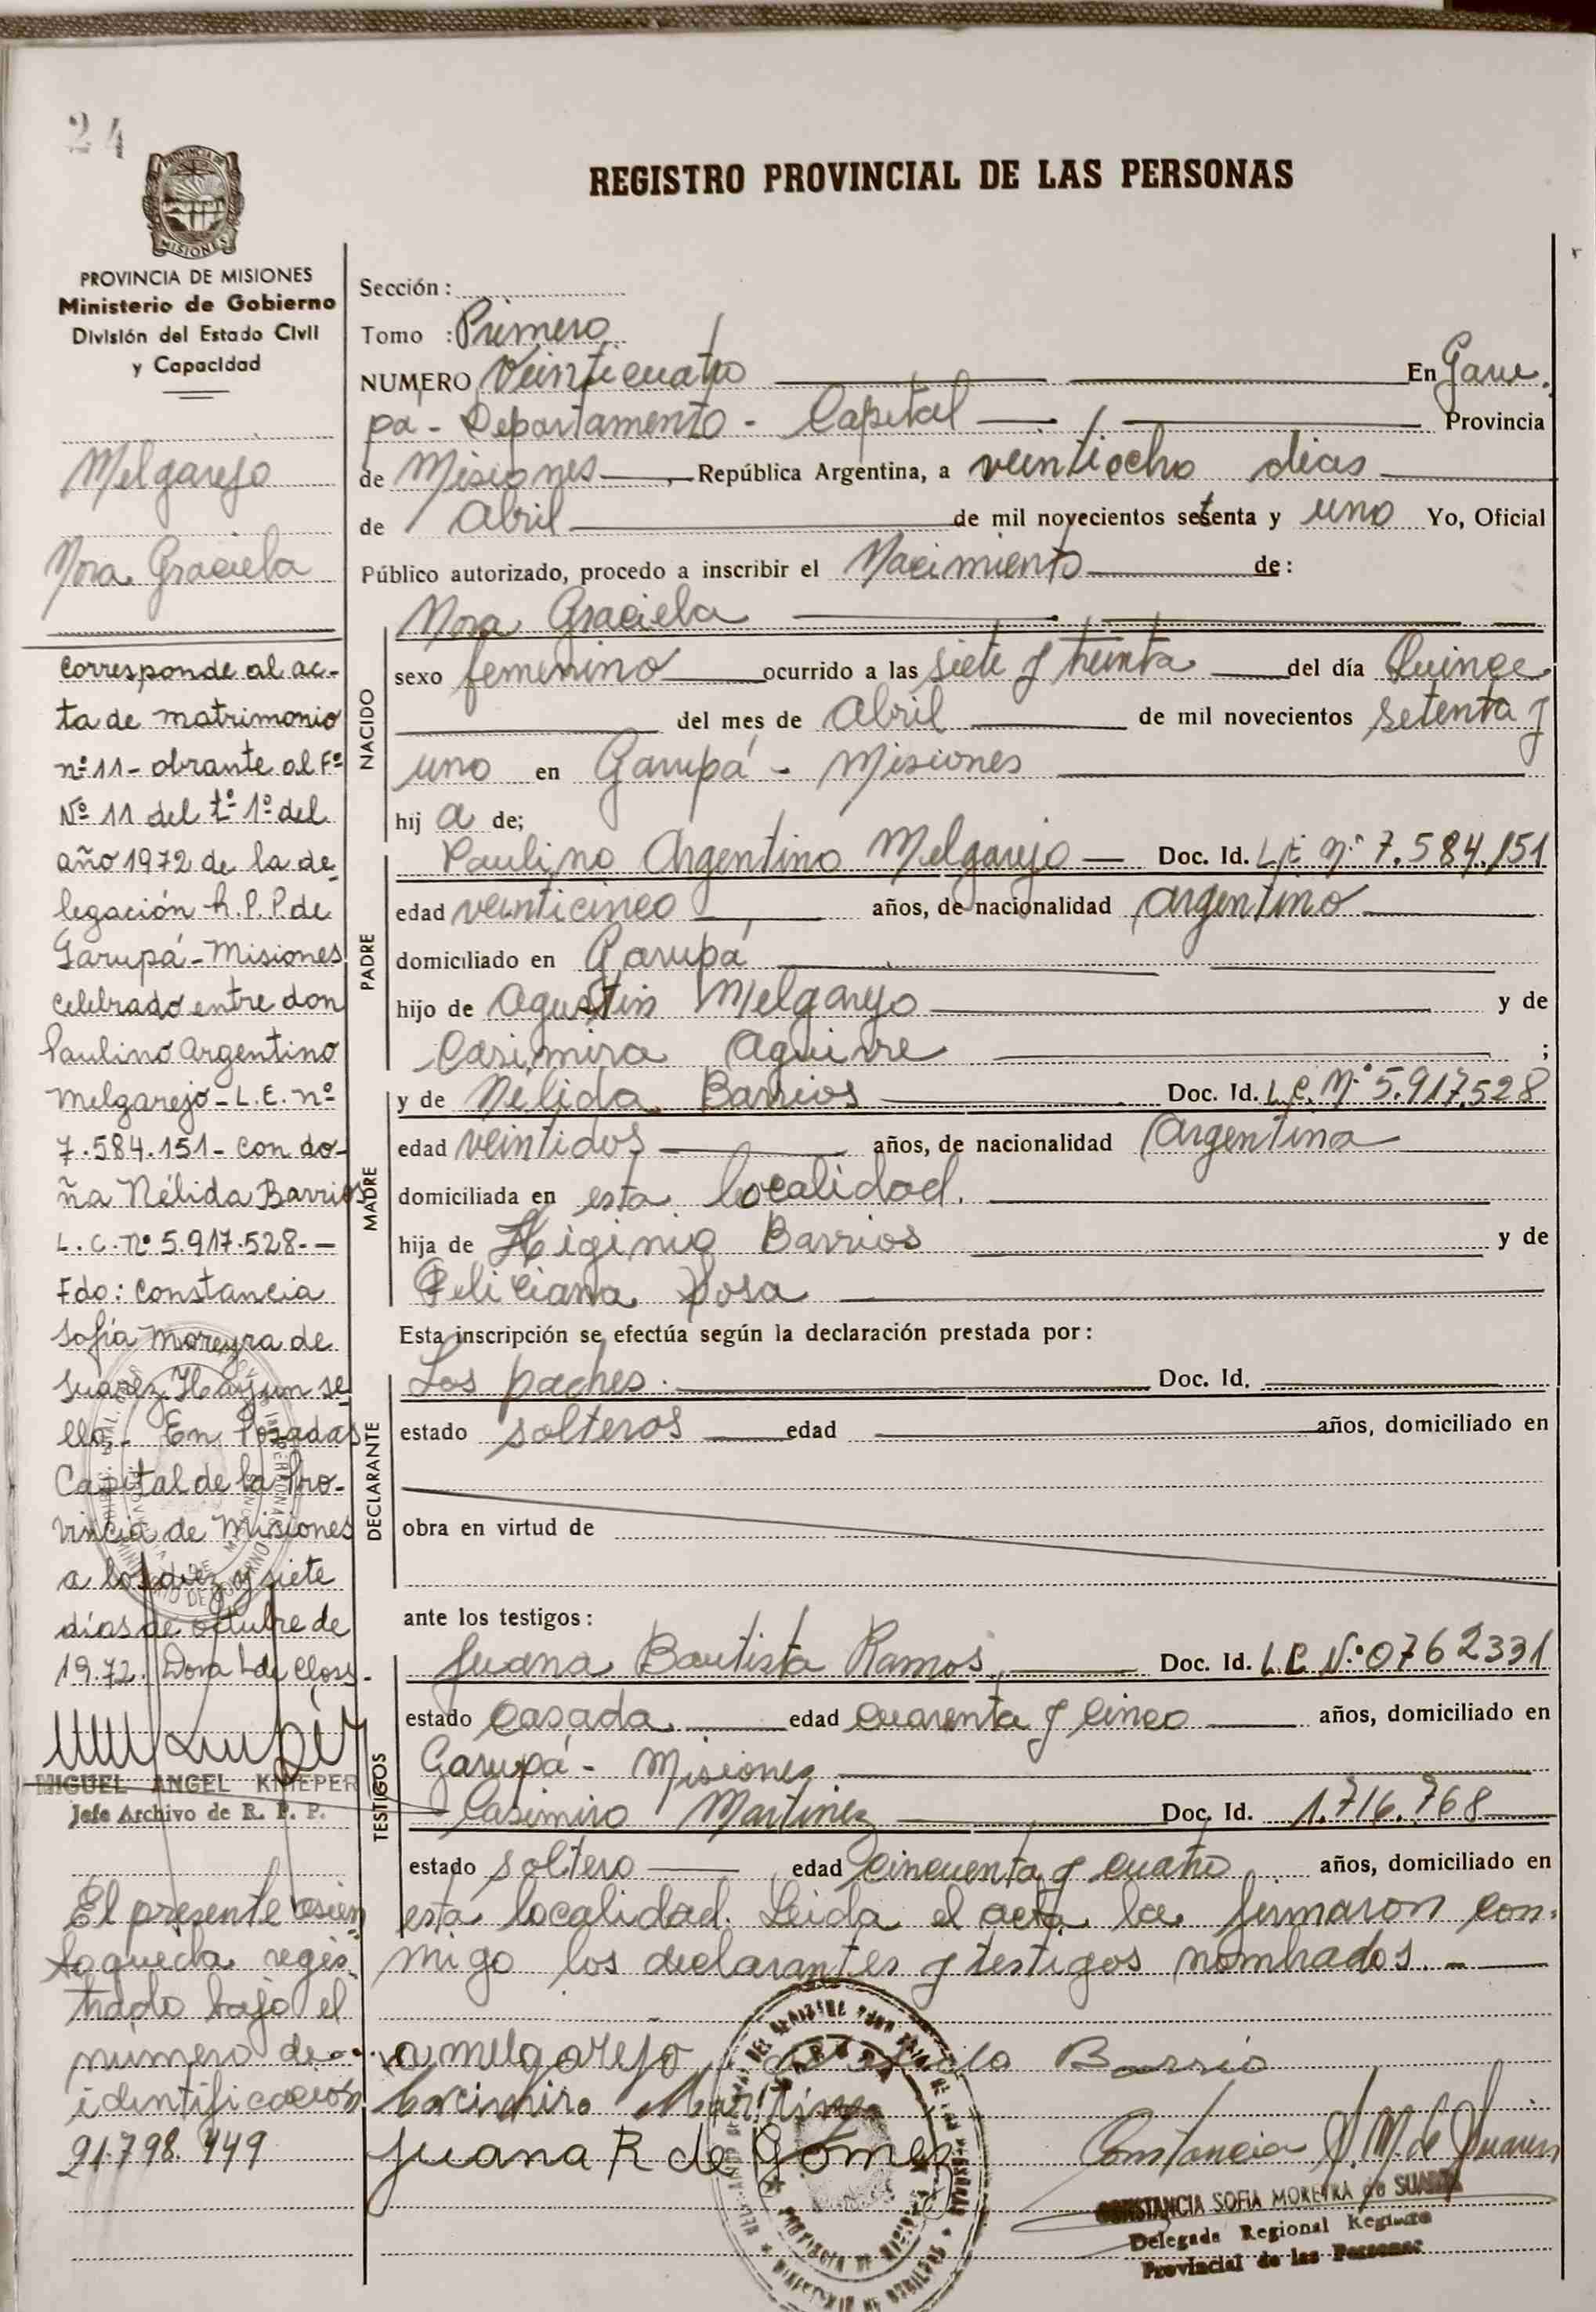 24
REGISTRO PROVINCIAL DE LAS PERSONAS
PROVINCIA DE MISIONES
Ministerio de Gobierno
División del Estado Civil
y Capacidad
Melgarejo
Nora Graciela
Corresponde al ac-
ta de matrimonio
nº 11 - obrante al Fº
Nº 11 del tº 1º del
año 1972 de la de
legación R.P.P. de
Garupá - Misiones
celebrado entre don
Paulino Argentino
Melgarejo - L.E. nº
7.584.151 - con do-
ña Nélida Barrios
L.C. nº 5.917.528 - -
Fdo: Constancia
Sofía Moreyra de
Suárez. Hay un se
llo. - En Posadas
Capital de la Pro-
vincia de Misiones
a los diez y siete
días de octubre de
1972. Dora L de Closs -
MIGUEL ANGEL KNIEPER
Jefe Archivo de R. P. P.
El presente asien
to queda regis
trado bajo el
número de
identificación
21.798.449
Sección :
Tomo : Primero
NUMERO Veinticuatro En Garu.
pá - Departamento - Capital Provincia
de Misiones , República Argentina, a veintiocho dias
de Abril de mil novecientos setenta y uno Yo, Oficial
Público autorizado, procedo a inscribir el Nacimiento de:
Nora Graciela
NACIDO
sexo femenino ocurrido a las siete y treinta del día Quince
del mes de Abril de mil novecientos setenta y
uno en Garupá - Misiones
hij a de;
PADRE
Paulino Argentino Melgarejo Doc. Id. L.E. Nº 7.584.151
edad veinticinco años, de nacionalidad argentino
domiciliado en Garupá
hijo de Agustin Melgarejo y de
Casimira Aguirre ;
MADRE
y de Nélida Barrios Doc. Id. L.C. Nº 5.917.528
edad veintidos años, de nacionalidad Argentina
domiciliada en esta localidad.
hija de Higinio Barrios y de
Feliciana Sosa
Esta inscripción se efectúa según la declaración prestada por :
DECLARANTE
Los padres. Doc. Id.
estado solteros edad años, domiciliado en
obra en virtud de
ante los testigos :
TESTIGOS
Juana Bautista Ramos Doc. Id. L.C. Nº 0762331
estado casada edad cuarenta y cinco años, domiciliado en
Garupá - Misiones
Casimiro Martinez Doc. Id. 1.716.768
estado soltero edad cincuenta y cuatro años, domiciliado en
esta localidad. Leida el acta la firmaron con-
migo los declarantes y testigos nombrados. -
melgarejo Barrio
Casimiro Martinez
Juana R de Gomes
Constancia S. M. de Suarez
CONSTANCIA SOFIA MOREYRA de SUAREZ
Delegada Regional Registro
Provincial de las Personas